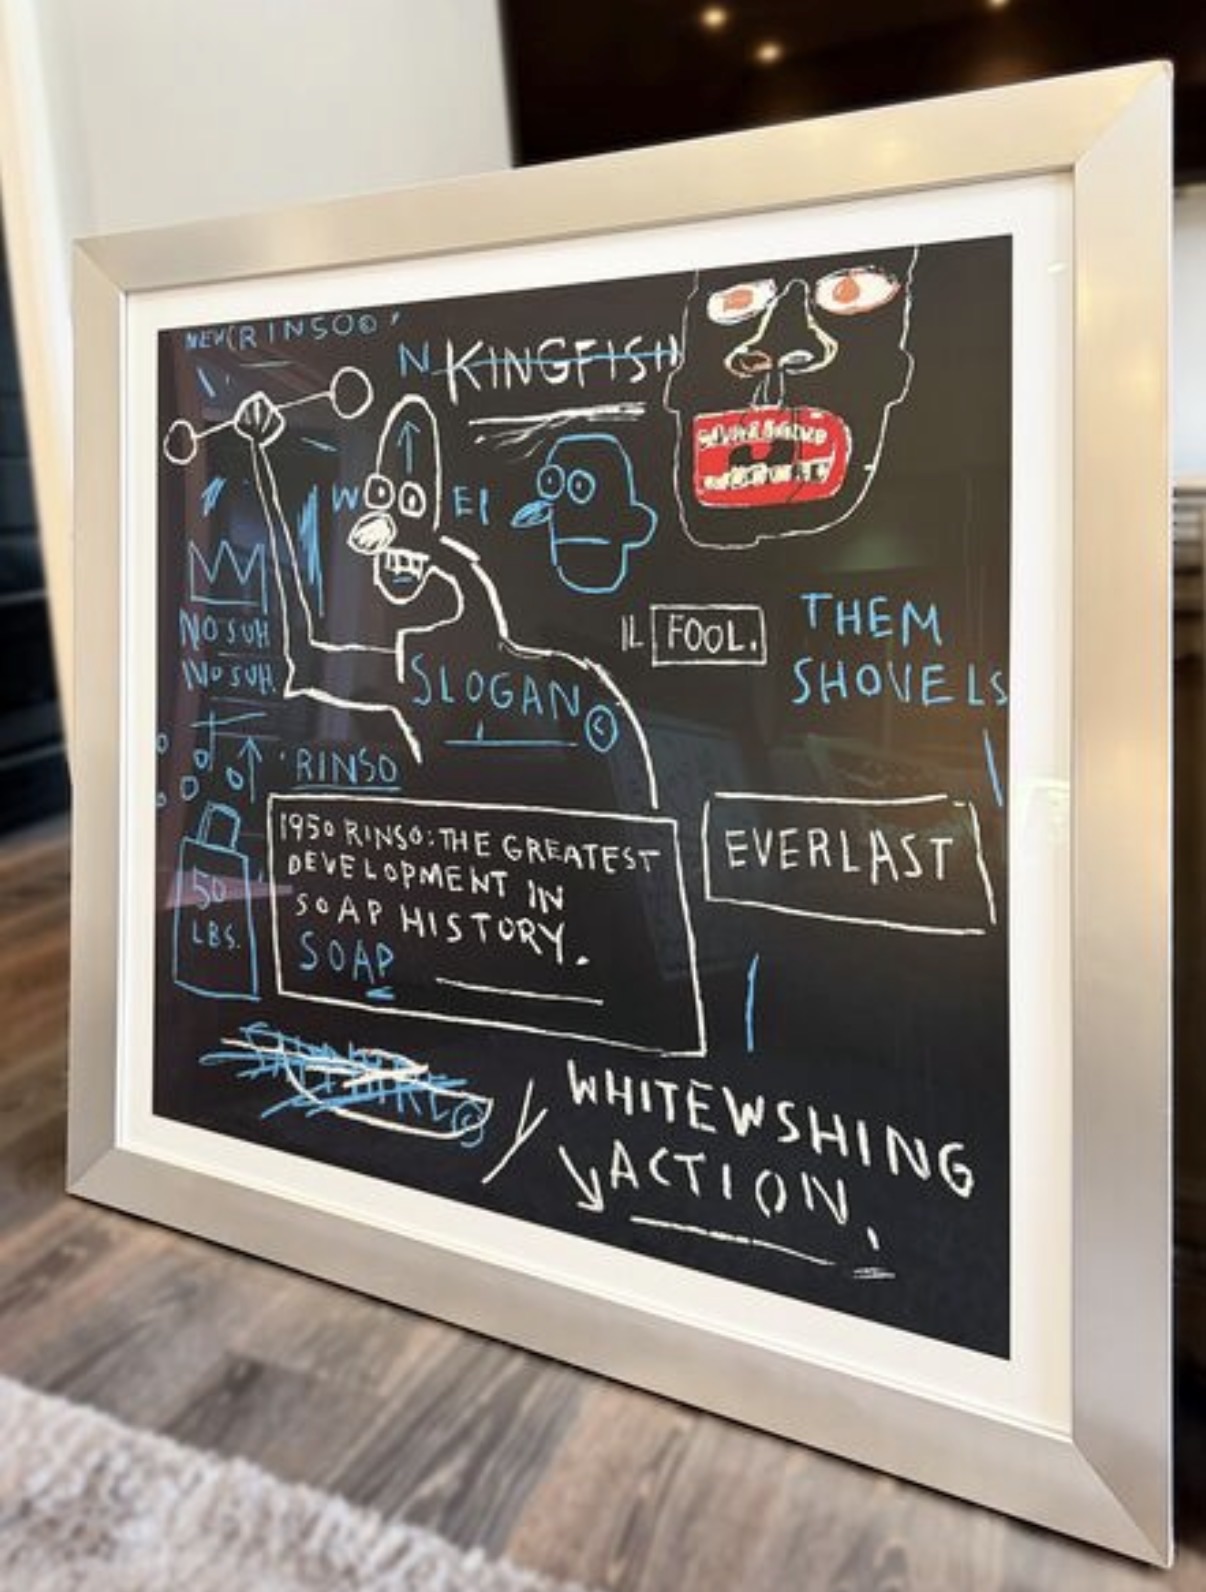 NEW RINSO©
N KINGFISH
W EI
NO SUH
NO SUH
IL FOOL.
THEM
SHOVELS
SLOGAN©
RINSO
50
LBS.
1950 RINSO: THE GREATEST
DEVELOPMENT IN
SOAP HISTORY.
SOAP
EVERLAST
WHITEWSHING
ACTION.